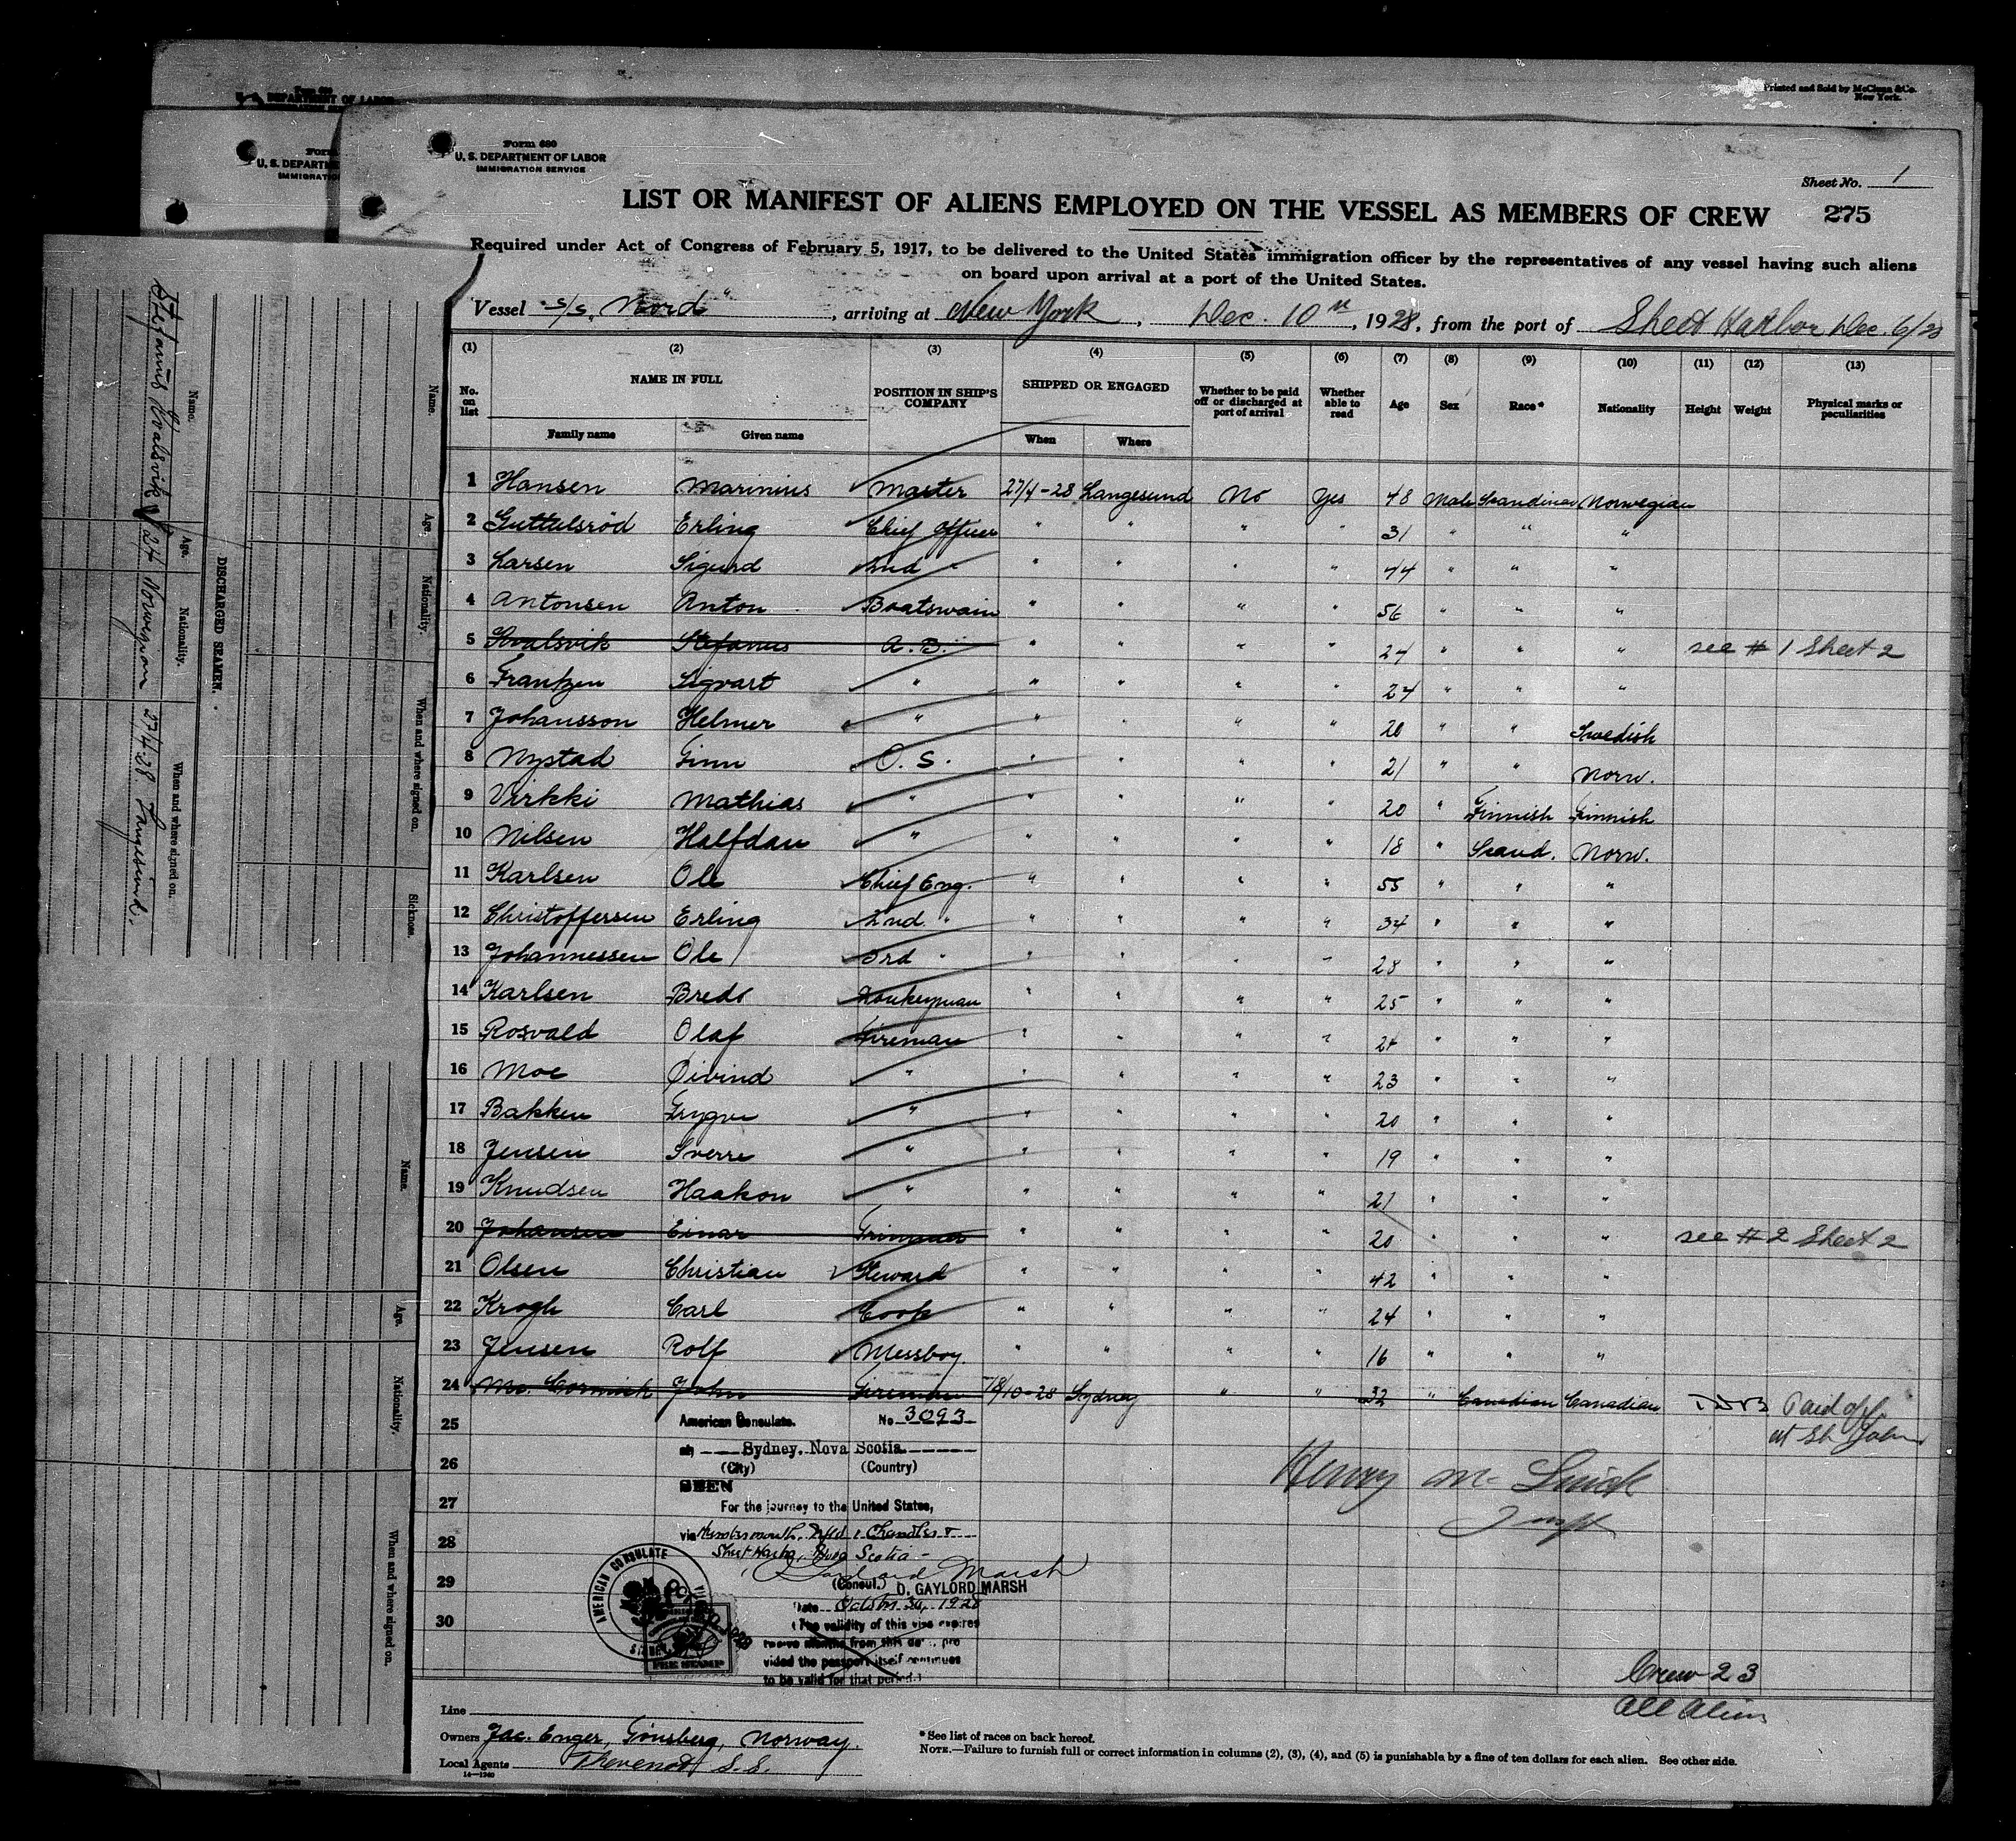 Form 689
DEPARTMENT OF LABOR
Printed and Sold by McClunn & Co.
New York.
U. S. DEPARTM
IMMIGRATIO
Form 680
U. S. DEPARTMENT OF LABOR
IMMIGRATION SERVICE
Sheet No. 1
LIST OR MANIFEST OF ALIENS EMPLOYED ON THE VESSEL AS MEMBERS OF CREW 275
Required under Act of Congress of February 5, 1917, to be delivered to the United States immigration officer by the representatives of any vessel having such aliens
on board upon arrival at a port of the United States.
Vessel "S/S. Nord", arriving at New York, Dec. 10th, 1928, from the port of Sheet Harbor Dec. 6/28
(1) (2) (3) (4) (5) (6) (7) (8) (9) (10) (11) (12) (13)
No. on list NAME IN FULL Family name Given name POSITION IN SHIP'S COMPANY SHIPPED OR ENGAGED When Where Whether to be paid off or discharged at port of arrival Whether able to read Age Sex Race* Nationality Height Weight Physical marks or peculiarities
1 Hansen Marinius Master 27/4-28 Langesund No Yes 48 Male Scandinav Norwegian
2 Guttulsröd Erling Chief Officer " " " " 31 " " "
3 Larsen Sigurd 2nd " " " " " 44 " " "
4 Antonsen Anton Boatswain " " " " 56 " " "
5 Kvalsvik Stefanus A. B. " " " " 24 " " " see # 1 Sheet 2
6 Frantzen Sigvart " " " " " 24 " " "
7 Johansson Helmer " " " " " 20 " " Swedish
8 Nystad Finn O. S. " " " " 21 " " Norw.
9 Virkki Mathias " " " " " 20 " Finnish Finnish
10 Nilsen Halfdan " " " " " 18 " Scand. Norw.
11 Karlsen Ole Chief Eng. " " " " 55 " " "
12 Christoffersen Erling 2nd. " " " " " 34 " " "
13 Johannessen Ole 3rd " " " " " 28 " " "
14 Karlsen Bredo Donkeyman " " " " 25 " " "
15 Rosvald Olaf Fireman " " " " 24 " " "
16 Moe Öivind " " " " " 23 " " "
17 Bakken Trygve " " " " " 20 " " "
18 Jensen Sverre " " " " " 19 " " "
19 Knudsen Haakon " " " " " 21 " " "
20 Johansen Einar Trimmer " " " " 20 " " " see # 2 Sheet 2
21 Olsen Christian Steward " " " " 42 " " "
22 Krogh Carl Cook " " " " 24 " " "
23 Jensen Rolf Messboy. " " " " 16 " " "
24 Mc. Cormick John Fireman 18/10-28 Sydney " " 32 " Canadian Canadian Paid off
at St. John
25
26
27
28
29
30
American Consulate. No. 3093
at Sydney, Nova Scotia
(City) (Country)
SEEN
For the journey to the United States,
via Nfld & Chandler &
Sheet Harbor, Nova Scotia
Gaylord Marsh
(Consul.) O. GAYLORD MARSH
Date October 30, 1928
(The validity of this visa expires
twelve months from this date, pro
vided the passport itself continues
to be valid for that period.)
AMERICAN CONSULATE
FEE STAMP
Henry
Insp
Crew 23
All Alien
Line
Owners Jac. Enger, Tönsberg, Norway.
Local Agents Thevenot S. S.
14—1240
* See list of races on back hereof.
NOTE.—Failure to furnish full or correct information in columns (2), (3), (4), and (5) is punishable by a fine of ten dollars for each alien. See other side.
DISCHARGED SEAMEN.
Name. Age. Nationality. When and where signed on.
Stefanus Kvalsvik 24 Norwegian 27/4-28. Langesund.
Name. Age. Nationality. When and where signed on. Sickness.
Name. Age. Nationality. When and where signed on.